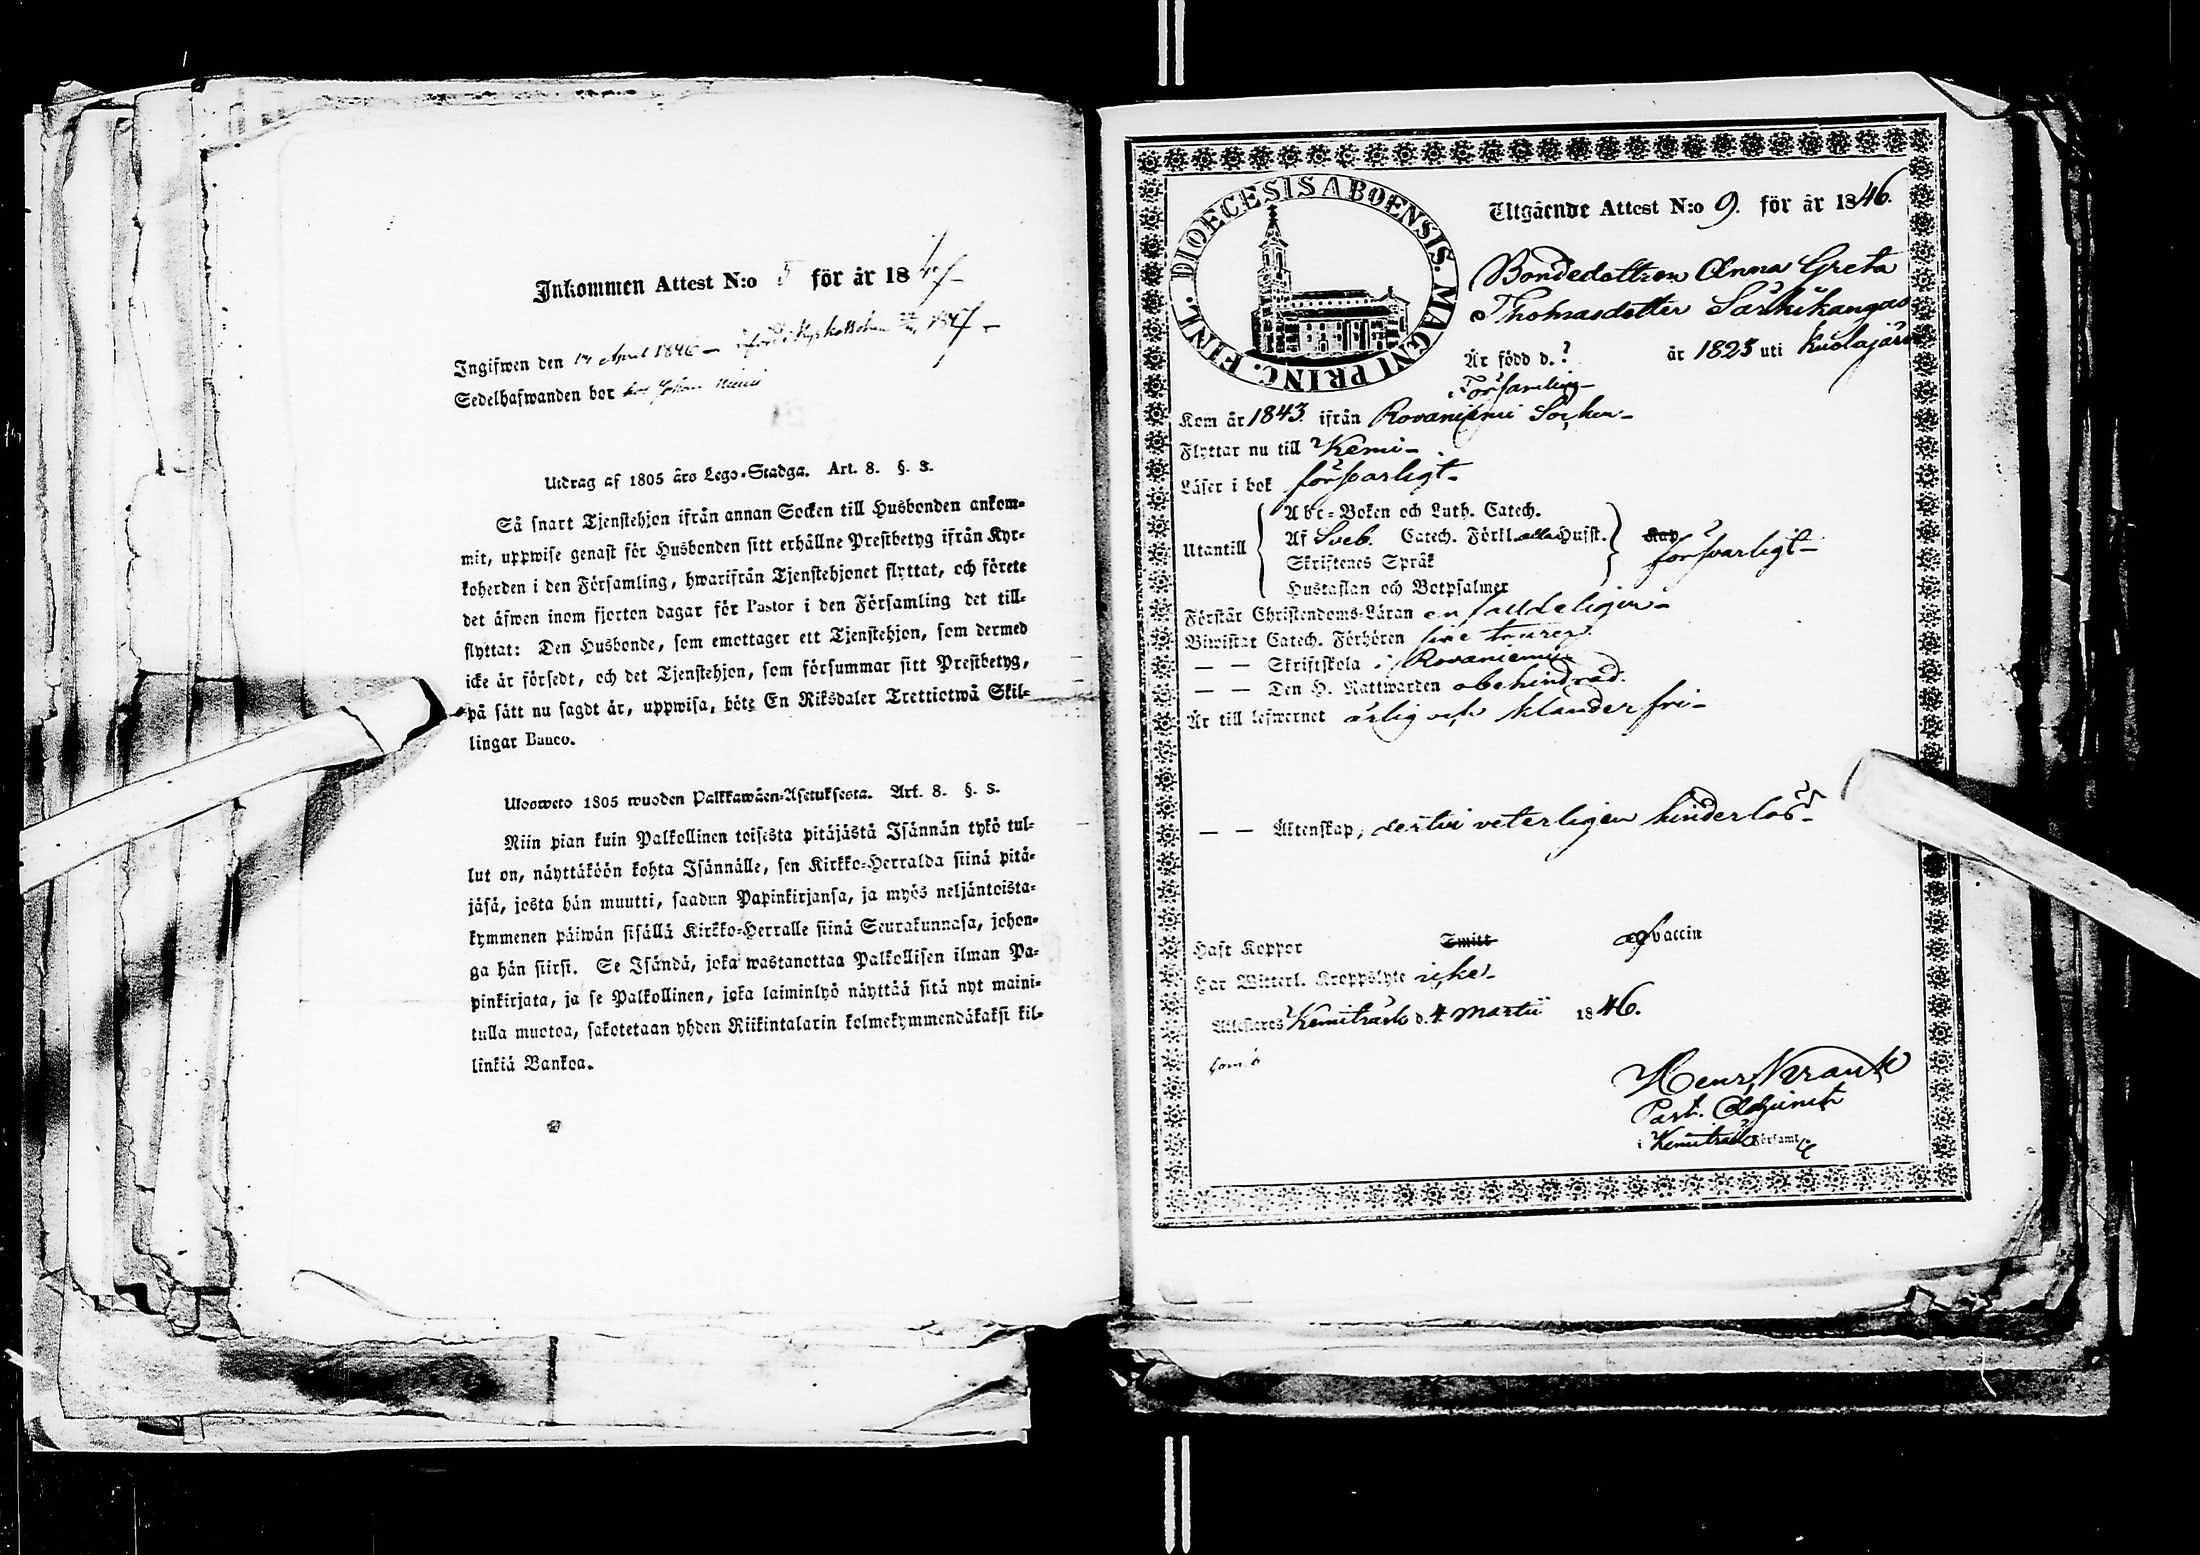 Inkommen Attest N:o 5 för år 1847
Ingifwen den 14 April 1846 införd i Kyrkoboken 1847
Sedelhafwanden bor hos Johan
Utdrag af 1805 års Lego-Stadga. Art. 8. §. 3.
Så snart Tjenstehjon ifrån annan Socken till Husbonden ankom-
mit, uppwise genast för Husbonden sitt erhållne Prestbetyg ifrån Kyr-
koherden i den Församling, hwarifrån Tjenstehjonet flyttat, och förete
det äfwen inom fjorton dagar för Pastor i den Församling det till-
flyttat: Den Husbonde, som emottager ett Tjenstehjon, som dermed
icke är försedt, och det Tjenstehjon, som försummar sitt Prestbetyg,
på sätt nu sagdt är, uppwisa, böte En Riksdaler Trettiotwå Skil-
lingar Banco.
Ulosweto 1805 wuoden Palkkawäen-Asetuksesta. Art. 8. §. 3.
Niin pian kuin Palkollinen toisesta pitäjästä Isännän tykö tul-
lut on, näyttäköön kohta Isännälle, sen Kirkko-Herralda siinä pitä-
jäsä, josta hän muutti, saadun Papinkirjansa, ja myös neljäntoista-
kymmenen päiwän sisällä Kirkko-Herralle siinä Seurakunnasa, johon-
ga hän siirsi. Se Isändä, joka wastanottaa Palkollisen ilman Pa-
pinkirjata, ja se Palkollinen, joka laiminlyö näyttää sitä nyt maini-
tulla muotoa, sakotetaan yhden Riikintalarin kolmekymmendäkaksi kil-
linkiä Bankoa.
DIOECESIS ABOENSIS. MAGNI PRINC. FINL.
Utgående Attest N:o 9. för år 1846.
Bondedottren Anna Greta
Thomasdotter Särkikangas
Är född d. ? år 1823 uti Kuolajärvi
Församling
Kom år 1843 ifrån Rovaniemi Socken
Flyttar nu till Kemi
Läser i bok försvarligt
Utantill
Abc-Boken och Luth. Catech.
Af Sveb. Catech. Förkl. Husst.
Skriftenes Språk
Hustaflan och Botpsalmer
försvarligt
Förstår Christendoms-Läran enfaldeligen
Biwistat Catech. Förhören
— — Skriftskola i Rovaniemi
— — Den H. Nattwarden obehindrad.
Är till lefwernet ärlig och klanderfri
— — Äktenskap, veterligen hinderlös
Haft Koppor Smitt af vaccin
Har Witterl. Kroppslyte icke
Attesteras Kemiträsk d. 4 Martii 1846.
Henr. Wrank
Past. Adjunct
i Kemiträsk Församl.